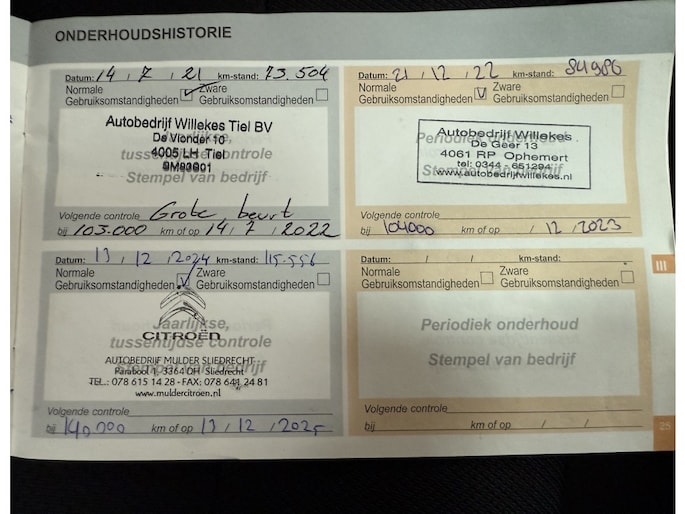 ONDERHOUDSHISTORIE
Datum: 14 / 7 / 21 km-stand: 73.504
Normale Gebruiksomstandigheden
Zware Gebruiksomstandigheden
Autobedrijf Willekes Tiel BV
De Vlonder 10
4005 LH Tiel
tussentijdse controle
Stempel van bedrijf
Volgende controle Grote beurt
bij 103.000 km of op 14 / 7 / 2022
Datum: 21 / 12 / 22 km-stand: 84986
Normale Gebruiksomstandigheden
Zware Gebruiksomstandigheden
Periodiek onderhoud
Autobedrijf Willekes
De Geer 13
4061 RP Ophemert
tel: 0344 - 651294
www.autobedrijfwillekes.nl
Stempel van bedrijf
Volgende controle
bij 104000 km of op / 12 / 2023
Datum: 13 / 12 / 2024 km-stand: 115.556
Normale Gebruiksomstandigheden
Zware Gebruiksomstandigheden
Jaarlijkse,
CITROËN
tussentijdse controle
AUTOBEDRIJF MULDER SLIEDRECHT
Parabool 1, 3364 DH Sliedrecht
TEL.: 078 615 14 28 - FAX: 078 641 24 81
www.muldercitroen.nl
Volgende controle
bij 140.000 km of op 13 / 12 / 2025
Datum: / / km-stand:
Normale Gebruiksomstandigheden
Zware Gebruiksomstandigheden
Periodiek onderhoud
Stempel van bedrijf
Volgende controle
bij km of op / /
III
25